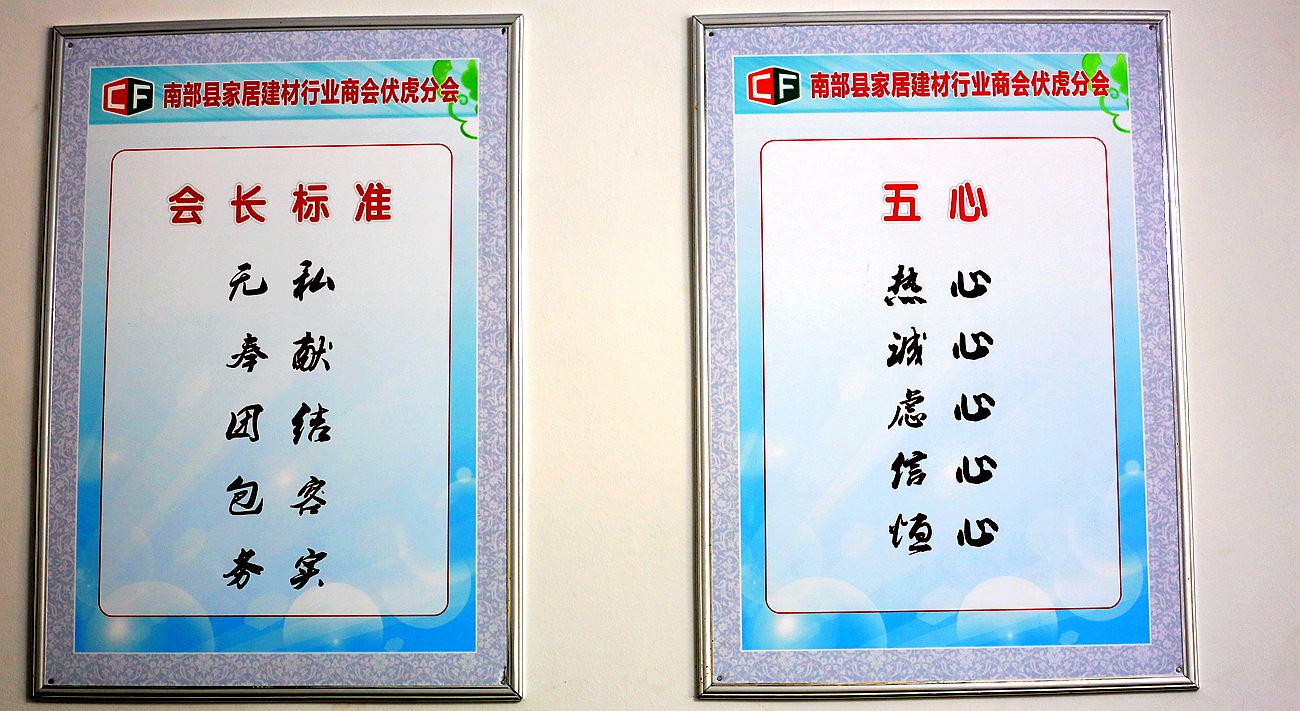 CF 南部县家居建材行业商会伏虎分会
会长标准
无私
奉献
团结
包容
务实
CF 南部县家居建材行业商会伏虎分会
五心
热心
诚心
虑心
信心
恒心